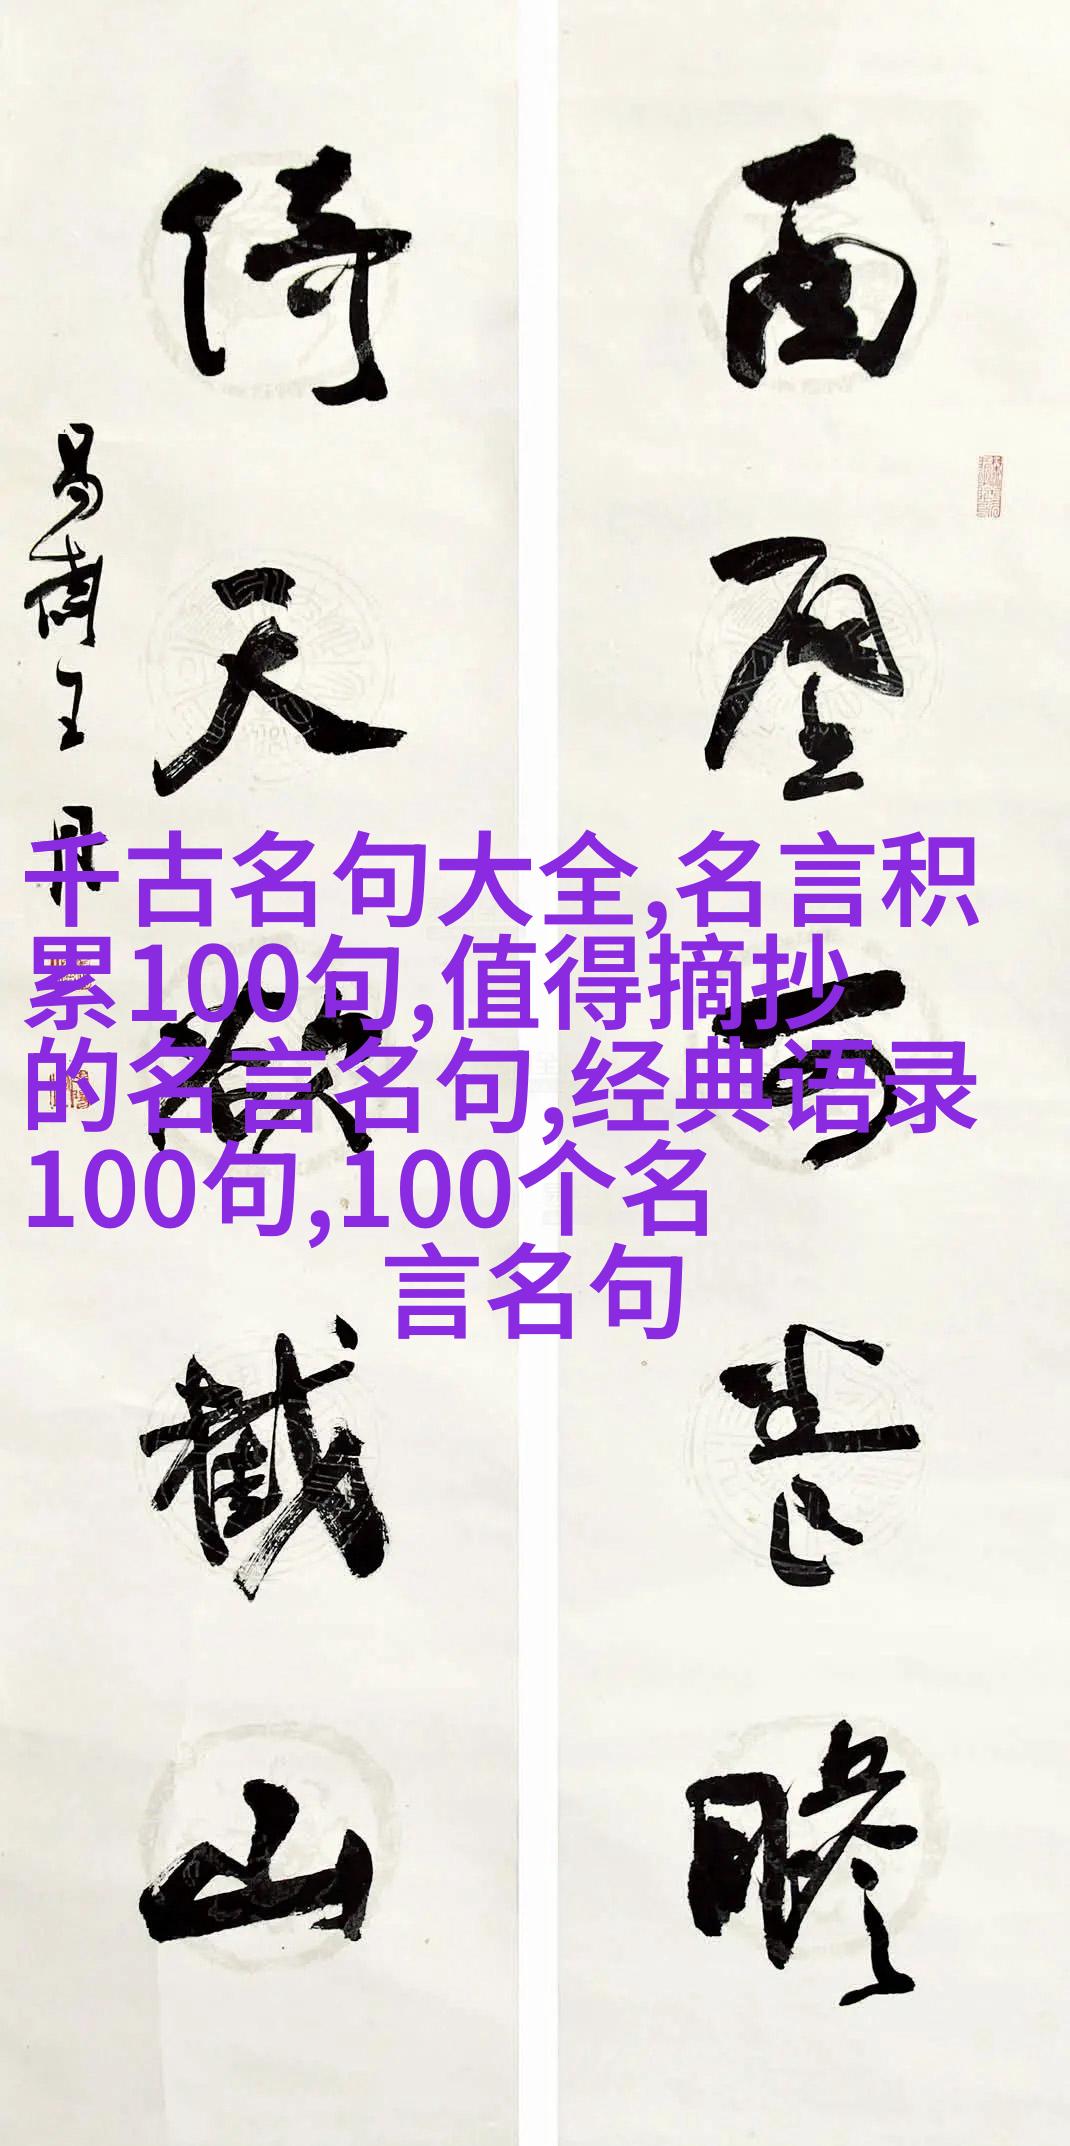 千古名句大全,名言积
累100句,值得摘抄
的名言名句,经典语录
100句,100个名
言名句
面壁
倚天欲截山